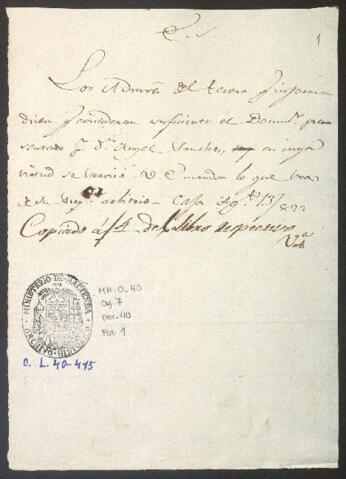 E. S.
1
Los Admres. del tesoro
dicen consideran suficiente el Docum.to pre
sentado p.r D.n Angel Sanches, en cuya
virtud se servirá V E mandar lo que sea
de su Sup.r arbitrio Casa Ag.to 13/822
Copiado á f 4 del Libro respectivo
MINISTERIO DE HACIENDA
ARCHIVO HISTORICO
MH-O.40
Caj. 7
Doc. 40
Fol. 1
O. L. 40-415